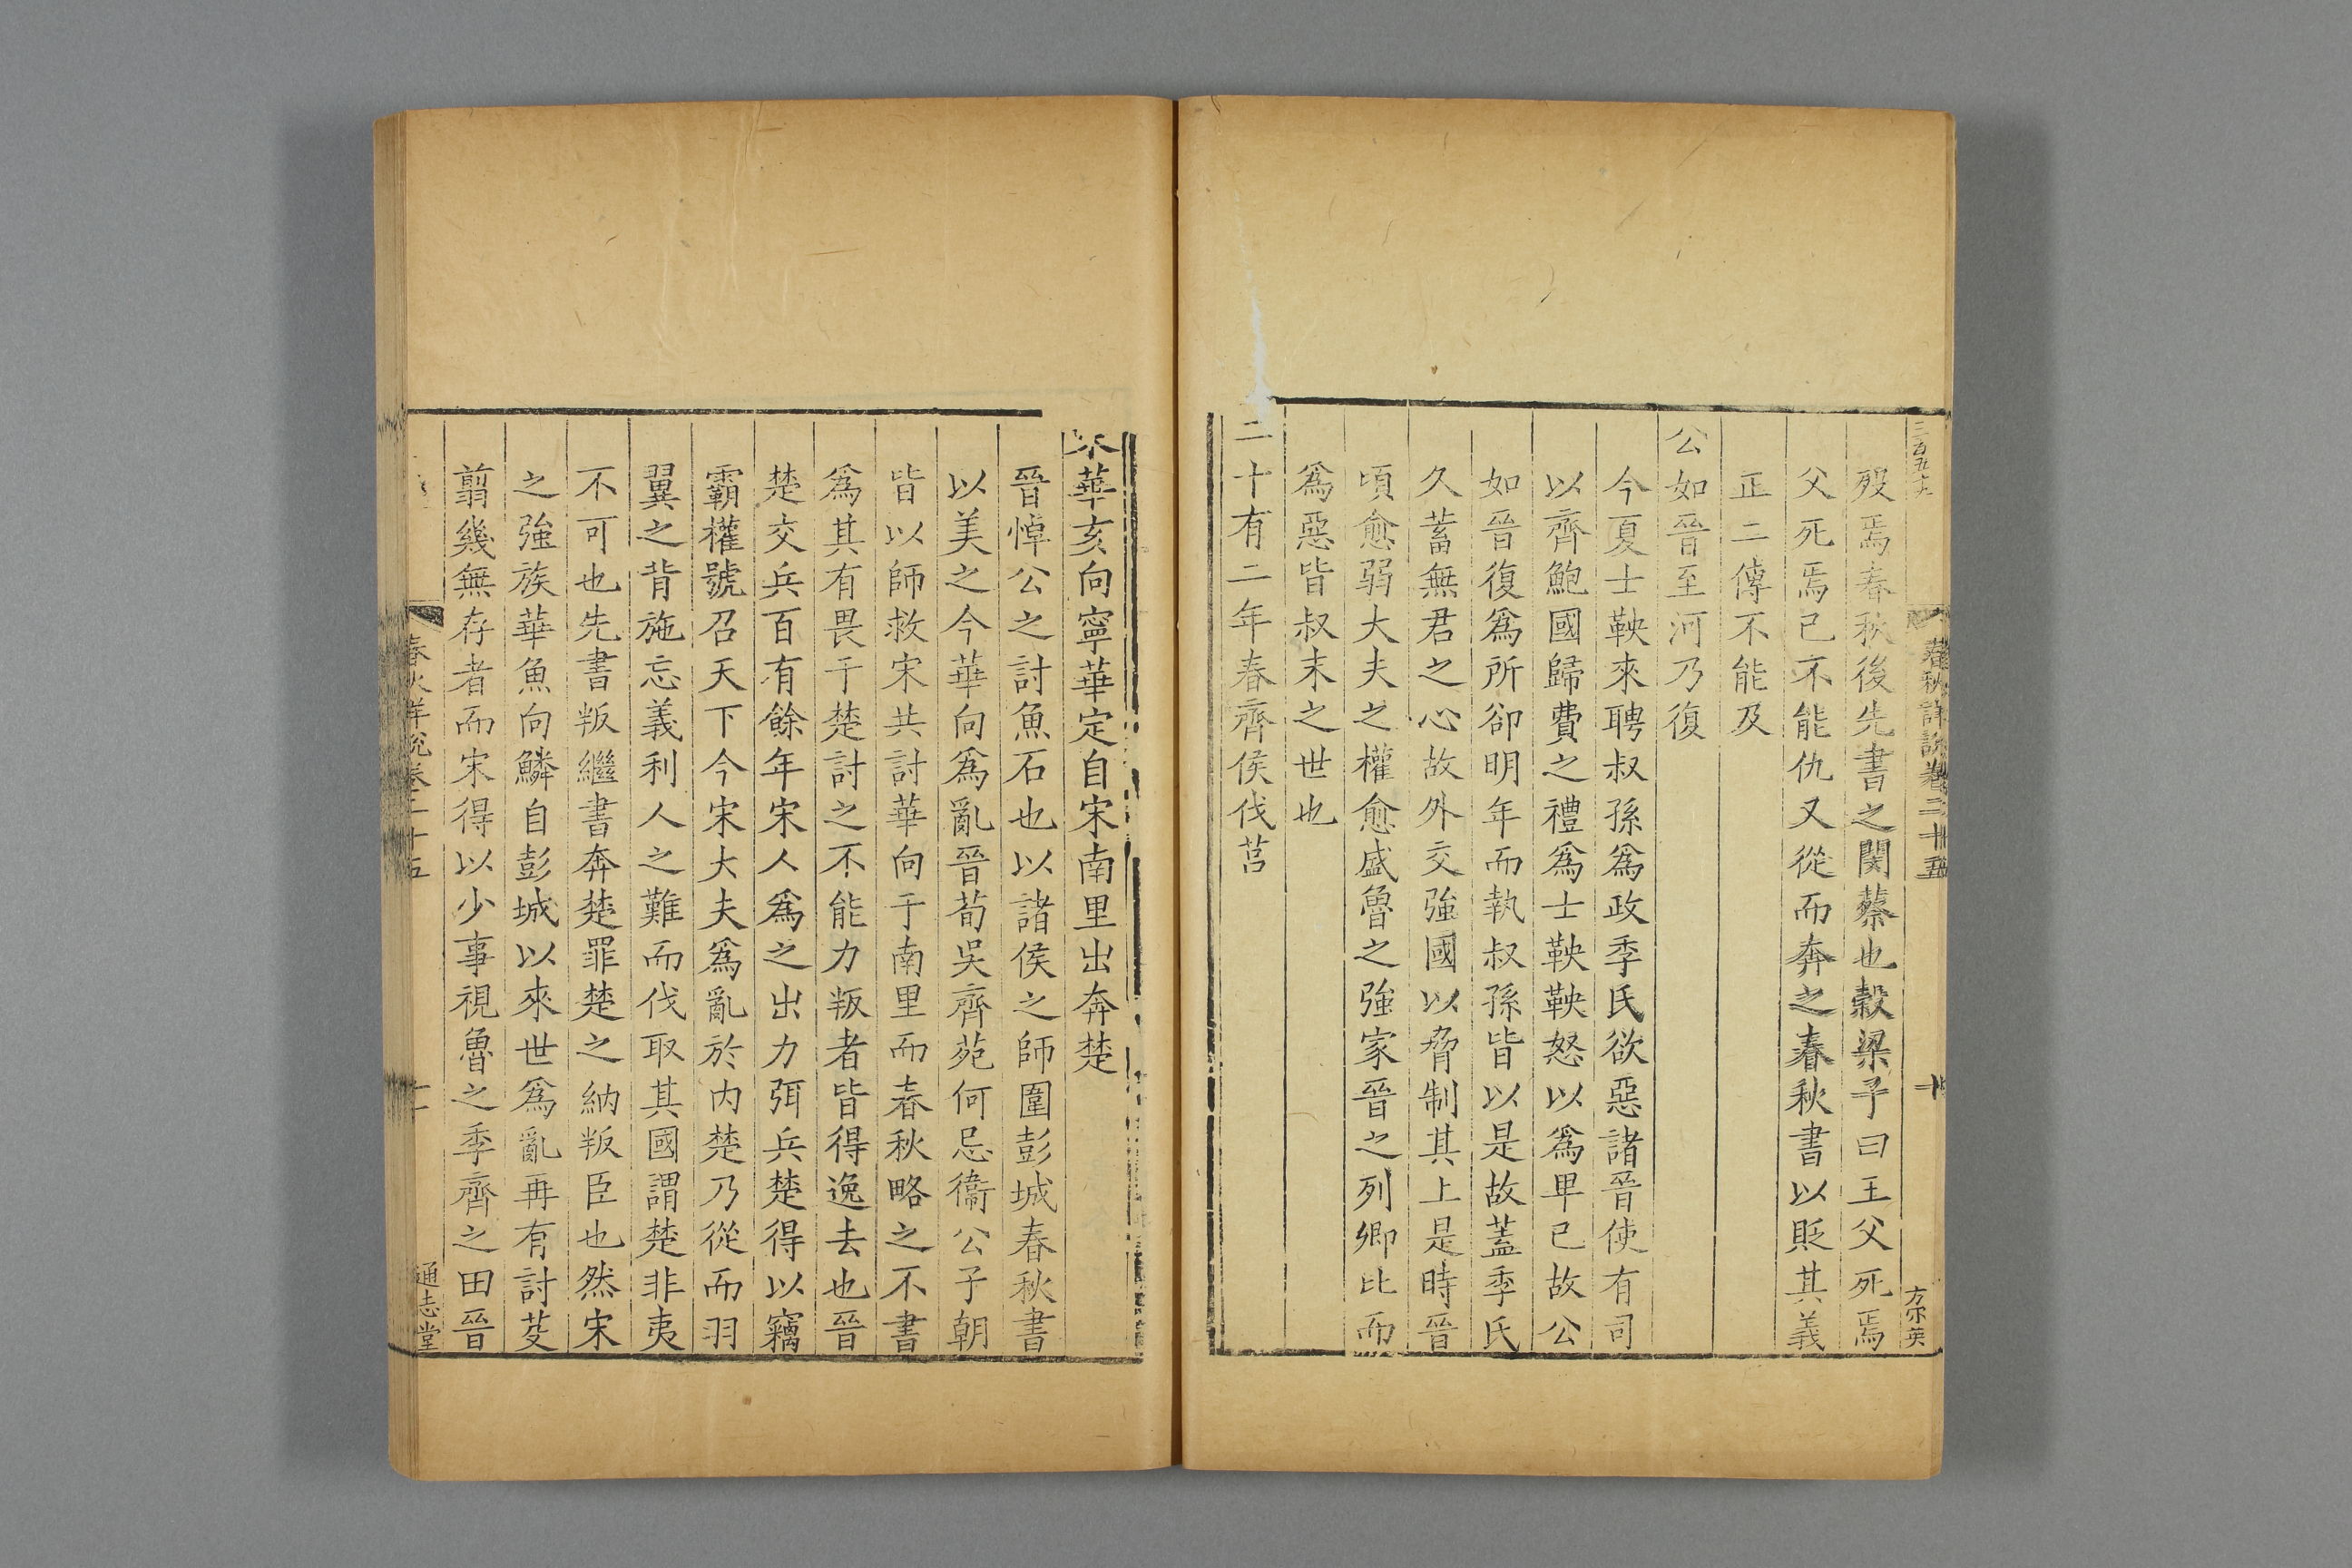 春秋詳說卷二十五
十
方尔英
歿焉春秋後先書之関蔡也穀梁子曰王父死焉
父死焉己不能仇又從而奔之春秋書以貶其義
正二傳不能及
公如晉至河乃復
今夏士鞅來聘叔孫爲政季氏欲惡諸晉使有司
以齊鮑國歸費之禮爲士鞅鞅怒以爲卑已故公
如晉復爲所卻明年而執叔孫皆以是故蓋季氏
久蓄無君之心故外交強國以脅制其上是時晉
頃愈弱大夫之權愈盛魯之強家晉之列卿比而
爲惡皆叔末之世也
二十有二年春齊侯伐莒
宋華亥向寧華定自宋南里出奔楚
晉悼公之討魚石也以諸侯之師圍彭城春秋書
以美之今華向爲亂晉荀吳齊苑何忌衞公子朝
皆以師救宋共討華向于南里而春秋略之不書
爲其有畏于楚討之不能力叛者皆得逸去也晉
楚交兵百有餘年宋人爲之出力弭兵楚得以竊
霸權號召天下今宋大夫爲亂於内楚乃從而羽
翼之背施忘義利人之難而伐取其國謂楚非夷
不可也先書叛繼書奔楚罪楚之納叛臣也然宋
之強族華魚向鱗自彭城以來世爲亂再有討芟
翦幾無存者而宋得以少事視魯之季齊之田晉
春秋詳說卷二十五
十一
通志堂